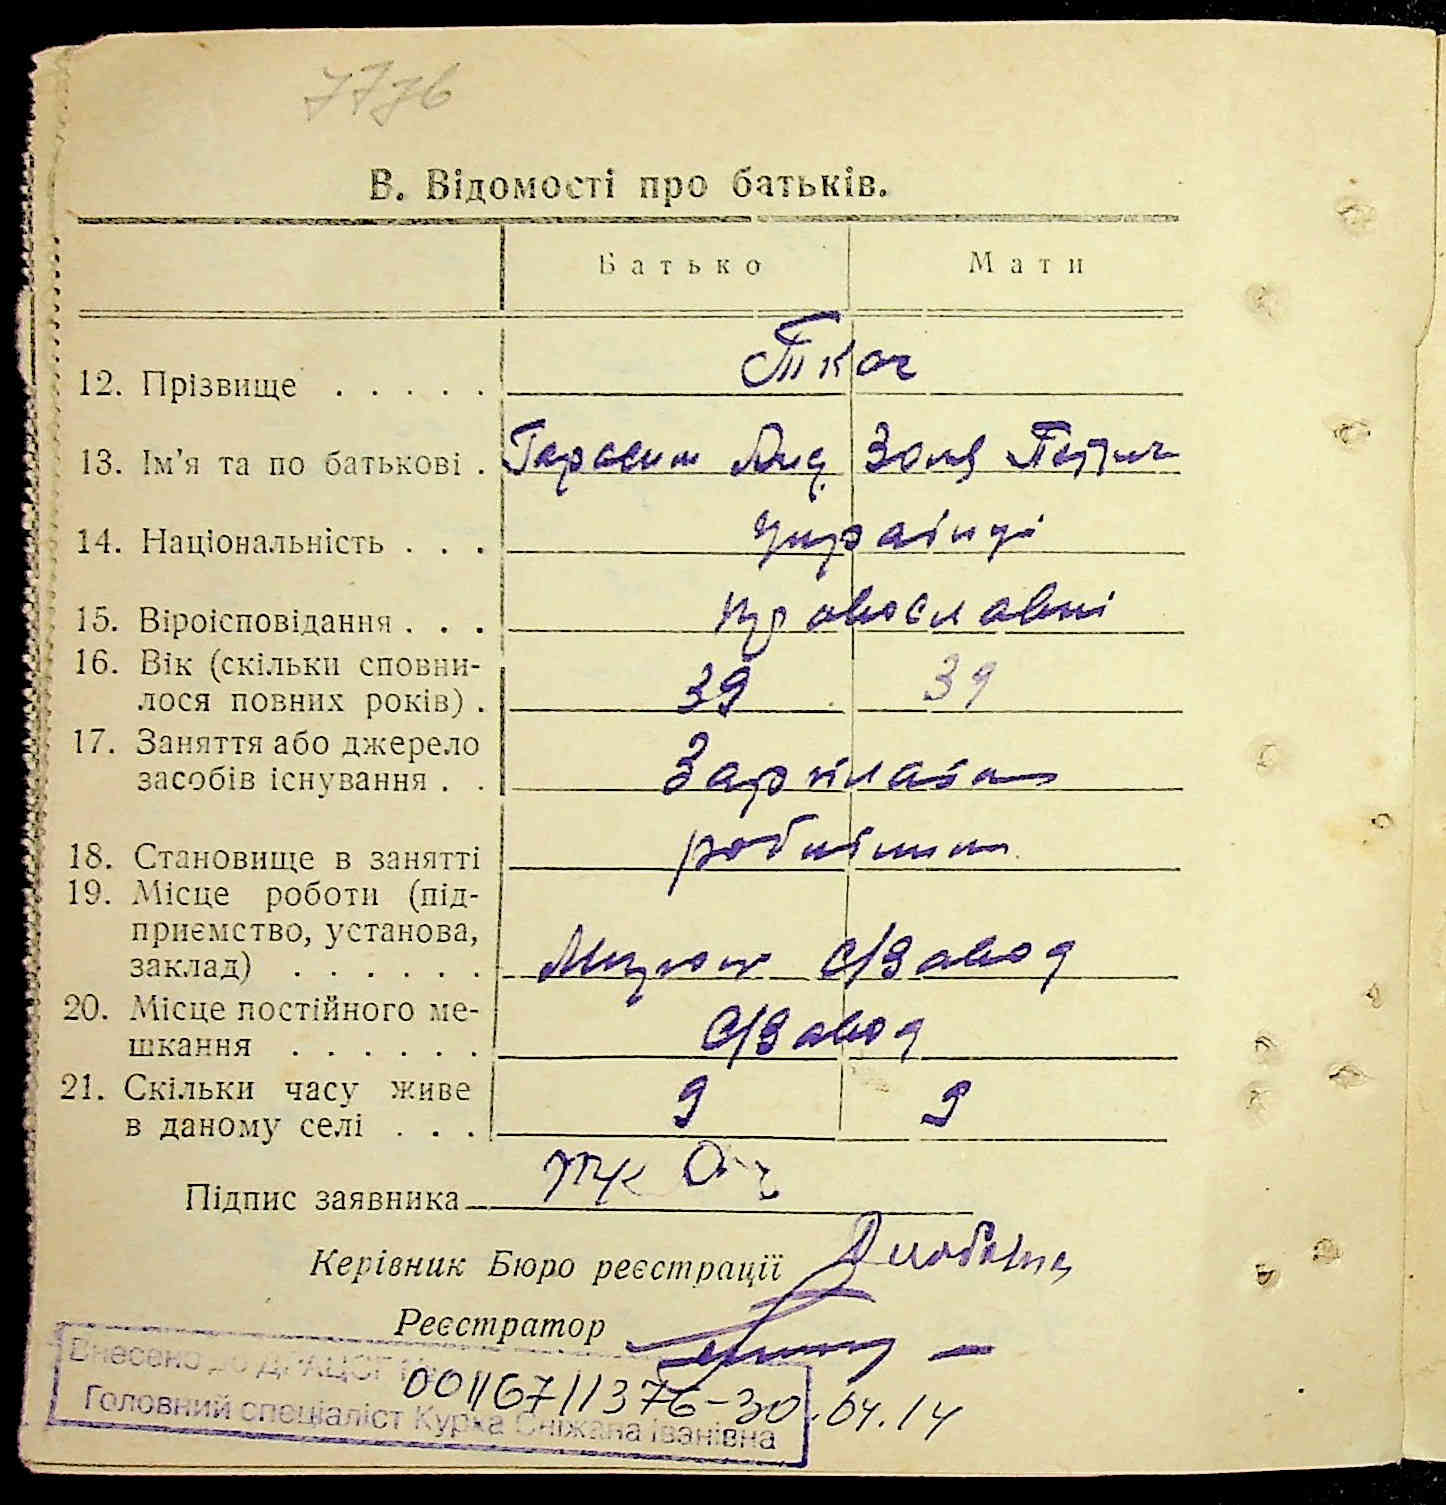 7776
В. Відомості про батьків.
Батько Мати
12. Прізвище . . . . . Ткач
13. Ім'я та по батькові . Гарасим Зоня
14. Національність . . . Українці
15. Віроісповідання . . . православні
16. Вік (скільки сповни-
лося повних років) . 39 39
17. Заняття або джерело
засобів існування . . Зарплата
18. Становище в занятті робітник
19. Місце роботи (під-
приємство, установа,
заклад) . . . . . . С/Завод
20. Місце постійного ме-
шкання . . . . . . С/Завод
21. Скільки часу живе
в даному селі . . . 9 9
Підпис заявника Ткач
Керівник Бюро реєстрації
Реєстратор
Внесено до ДРАЦСГ
00116711376-30.04.14
Головний спеціаліст Курка Сніжана Іванівна